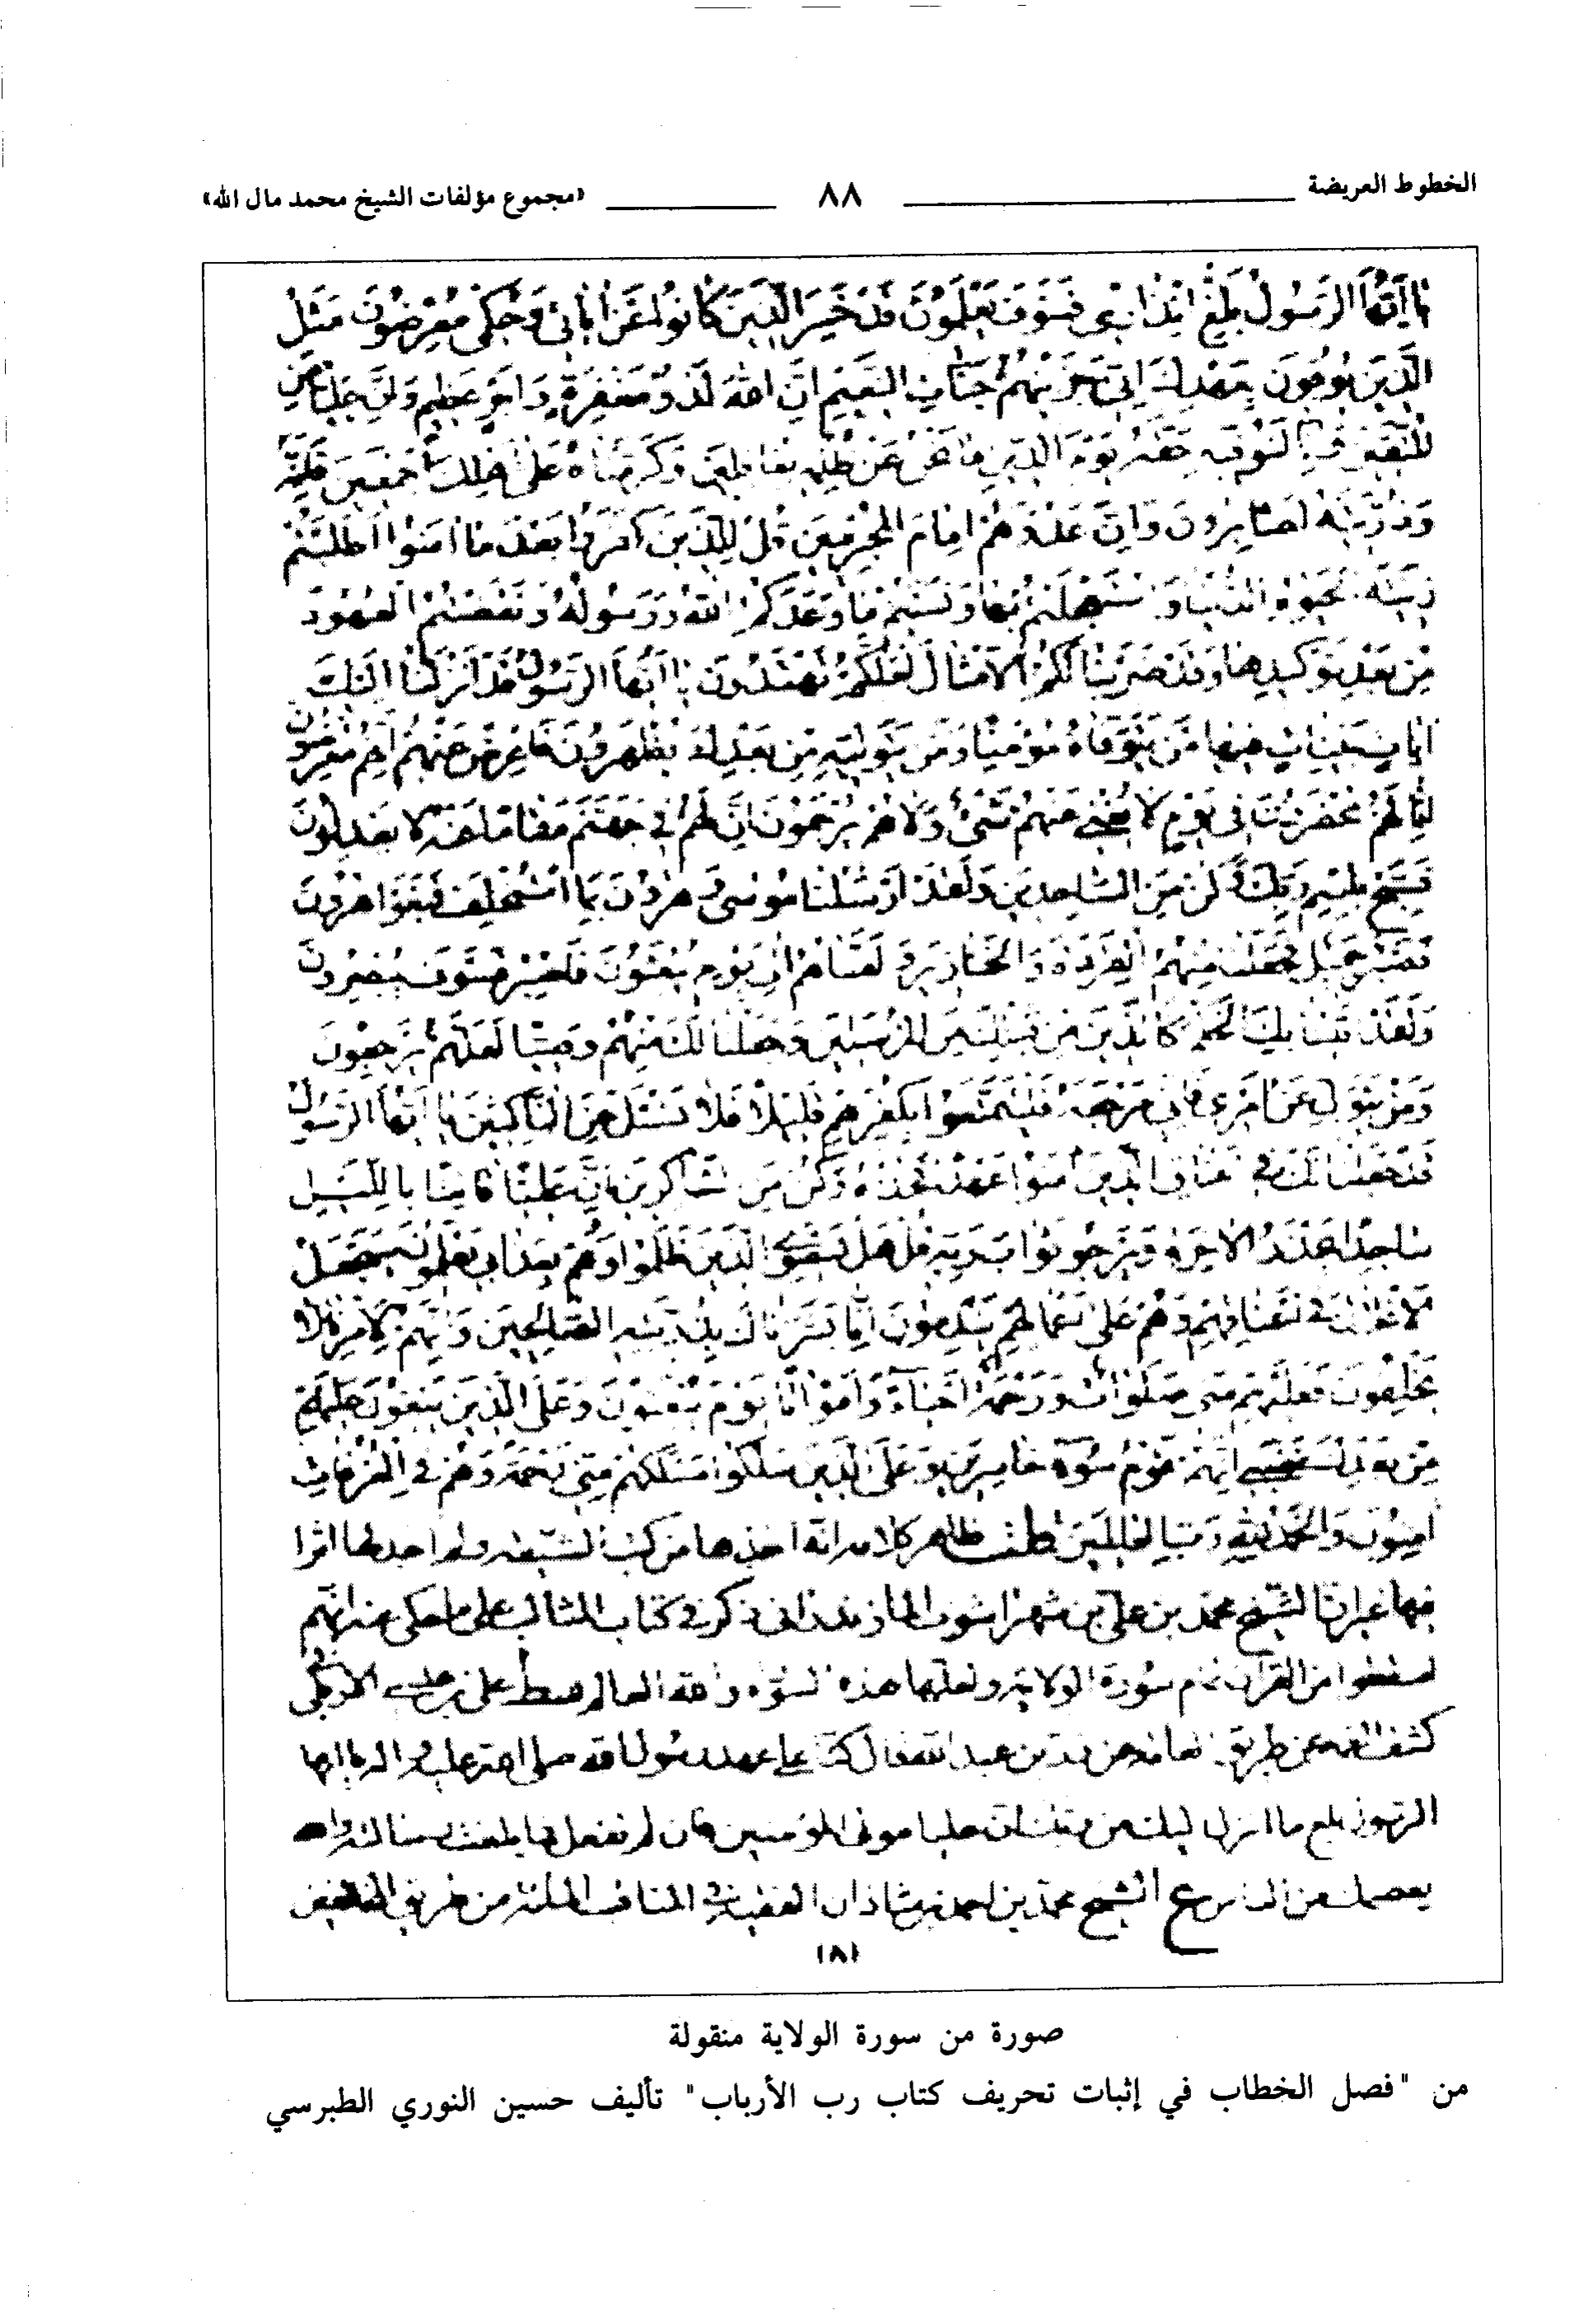 الخطوط العريضة ٨٨ «مجموع مؤلفات الشيخ محمد مال الله»
يا أَيُّهَا الرَّسُولُ بَلِّغْ إِنْذَارِي فَسَوْفَ يَعْلَمُونَ قَدْ خَسِرَ الَّذِينَ كَانُوا عَنْ آيَاتِي وَحُكْمِي مُعْرِضُونَ مَثَلُ
الَّذِينَ يُوفُونَ بِعَهْدِكَ إِنِّي جَزَيْتُهُمْ جَنَّاتِ النَّعِيمِ إِنَّ اللهَ لَذُو مَغْفِرَةٍ وَأَجْرٍ عَظِيمٍ وَإِنَّ عَلِيًّا مِنَ
الْمُتَّقِينَ وَإِنَّا لَنُوَفِّيهِ حَقَّهُ يَوْمَ الدِّينِ مَا نَحْنُ عَنْ ظُلْمِهِ بِغَافِلِينَ وَكَرَّمْنَاهُ عَلَى أَهْلِكَ أَجْمَعِينَ فَإِنَّهُ
وَذُرِّيَّتَهُ لَصَابِرُونَ وَإِنَّ عَدُوَّهُمْ إِمَامُ الْمُجْرِمِينَ قُلْ لِلَّذِينَ كَفَرُوا بَعْدَ مَا آمَنُوا أَطَلَبْتُمْ
زِينَةَ الْحَيَوةِ الدُّنْيَا وَاسْتَعْجَلْتُمْ بِهَا وَنَسِيتُمْ مَا وَعَدَكُمُ اللهُ وَرَسُولُهُ وَنَقَضْتُمُ الْعُهُودَ
مِنْ بَعْدِ تَوْكِيدِهَا وَقَدْ ضَرَبْنَا لَكُمُ الْأَمْثَالَ لَعَلَّكُمْ تَهْتَدُونَ يَا أَيُّهَا الرَّسُولُ قَدْ أَنْزَلْنَا إِلَيْكَ
آيَاتٍ بَيِّنَاتٍ فِيهَا مَنْ يَتَوَفَّاهُ مُؤْمِنًا وَمَنْ يَتَوَلَّيْهِ مِنْ بَعْدِكَ يُظْهَرُونَ فَأَعْرِضْ عَنْهُمْ إِنَّهُمْ مُعْرِضُونَ
إِنَّا لَهُمْ مُحْضِرُونَ فِي يَوْمٍ لَا يُغْنِي عَنْهُمْ شَيْءٌ وَلَا هُمْ يُرْحَمُونَ إِنَّ لَهُمْ فِي جَهَنَّمَ مَقَامًا عَنْهُ لَا يَعْدِلُونَ
فَسَبِّحْ بِاسْمِ رَبِّكَ وَكُنْ مِنَ السَّاجِدِينَ وَلَقَدْ أَرْسَلْنَا مُوسَى وَهَارُونَ بِمَا اسْتُخْلِفَ فَبَغَوْا هَارُونَ
فَصَبْرٌ جَمِيلٌ فَجَعَلْنَا مِنْهُمُ الْقِرَدَةَ وَالْخَنَازِيرَ وَلَعَنَّاهُمْ إِلَى يَوْمِ يُبْعَثُونَ فَاصْبِرْ فَسَوْفَ يُبْصِرُونَ
وَلَقَدْ آتَيْنَا بِكَ الْحُكْمَ كَالَّذِينَ مِنْ قَبْلِكَ مِنَ الْمُرْسَلِينَ وَجَعَلْنَا لَكَ مِنْهُمْ وَصِيًّا لَعَلَّهُمْ يَرْجِعُونَ
وَمَنْ يَتَوَلَّ عَنْ أَمْرِي فَإِنِّي مَرْجِعُهُ فَلْيَتَمَتَّعُوا بِكُفْرِهِمْ قَلِيلًا فَلَا تَسْئَلْ عَنِ النَّاكِثِينَ يَا أَيُّهَا الرَّسُولُ
قَدْ جَعَلْنَا لَكَ فِي أَعْنَاقِ الَّذِينَ آمَنُوا عَهْدًا فَخُذْهُ وَكُنْ مِنَ الشَّاكِرِينَ إِنَّ عَلِيًّا قَانِتًا بِاللَّيْلِ
سَاجِدًا يَحْذَرُ الْآخِرَةَ وَيَرْجُو ثَوَابَ رَبِّهِ قُلْ هَلْ يَسْتَوِي الَّذِينَ ظَلَمُوا وَهُمْ بِعَذَابِي يَعْلَمُونَ سَيُجْعَلُ
الْأَغْلَالُ فِي أَعْنَاقِهِمْ وَهُمْ عَلَى أَعْمَالِهِمْ يَنْدَمُونَ إِنَّا بَشَّرْنَاكَ بِذُرِّيَّتِهِ الصَّالِحِينَ وَإِنَّهُمْ لِأَمْرِنَا لَا
يُخْلِفُونَ فَعَلَيْهِمْ مِنِّي صَلَوَاتٌ وَرَحْمَةٌ أَحْيَاءً وَأَمْوَاتًا يَوْمَ يُبْعَثُونَ وَعَلَى الَّذِينَ يَبْغُونَ عَلَيْهِمْ
مِنْ بَعْدِكَ غَضَبِي إِنَّهُمْ قَوْمُ سَوْءٍ خَاسِرِينَ وَعَلَى الَّذِينَ سَلَكُوا مَسْلَكَهُمْ مِنِّي رَحْمَةٌ وَهُمْ فِي الْغُرُفَاتِ
آمِنُونَ وَالْحَمْدُ لِلَّهِ رَبِّ الْعَالَمِينَ قلت ظاهر كلامه انه اخذها من كتب الشيعه ولم اجد لها اثرا
فيها غير ان الشيخ محمد بن علي بن شهر اشوب المازندراني ذكر في كتاب المثالب على ما حكى عنه انهم
اسقطوا من القرآن تمام سورة الولاية ولعلها هذه السورة والله العالم على بن عيسى الاربلي
كشف الغمه عن طريق العامه عن زر بن عبد الله قال كنا على عهد رسول الله صلى الله عليه واله يا ايها
الرسول بلغ ما انزل اليك من ربك ان عليا مولى المؤمنين فان لم تفعل فما بلغت رسالته والله
يعصمك من الناس الشيخ محمد بن احمد بن شاذان الفقيه في المناقب المائة من طريق المخالفين
١٨١
صورة من سورة الولاية منقولة
من "فصل الخطاب في إثبات تحريف كتاب رب الأرباب" تأليف حسين النوري الطبرسي